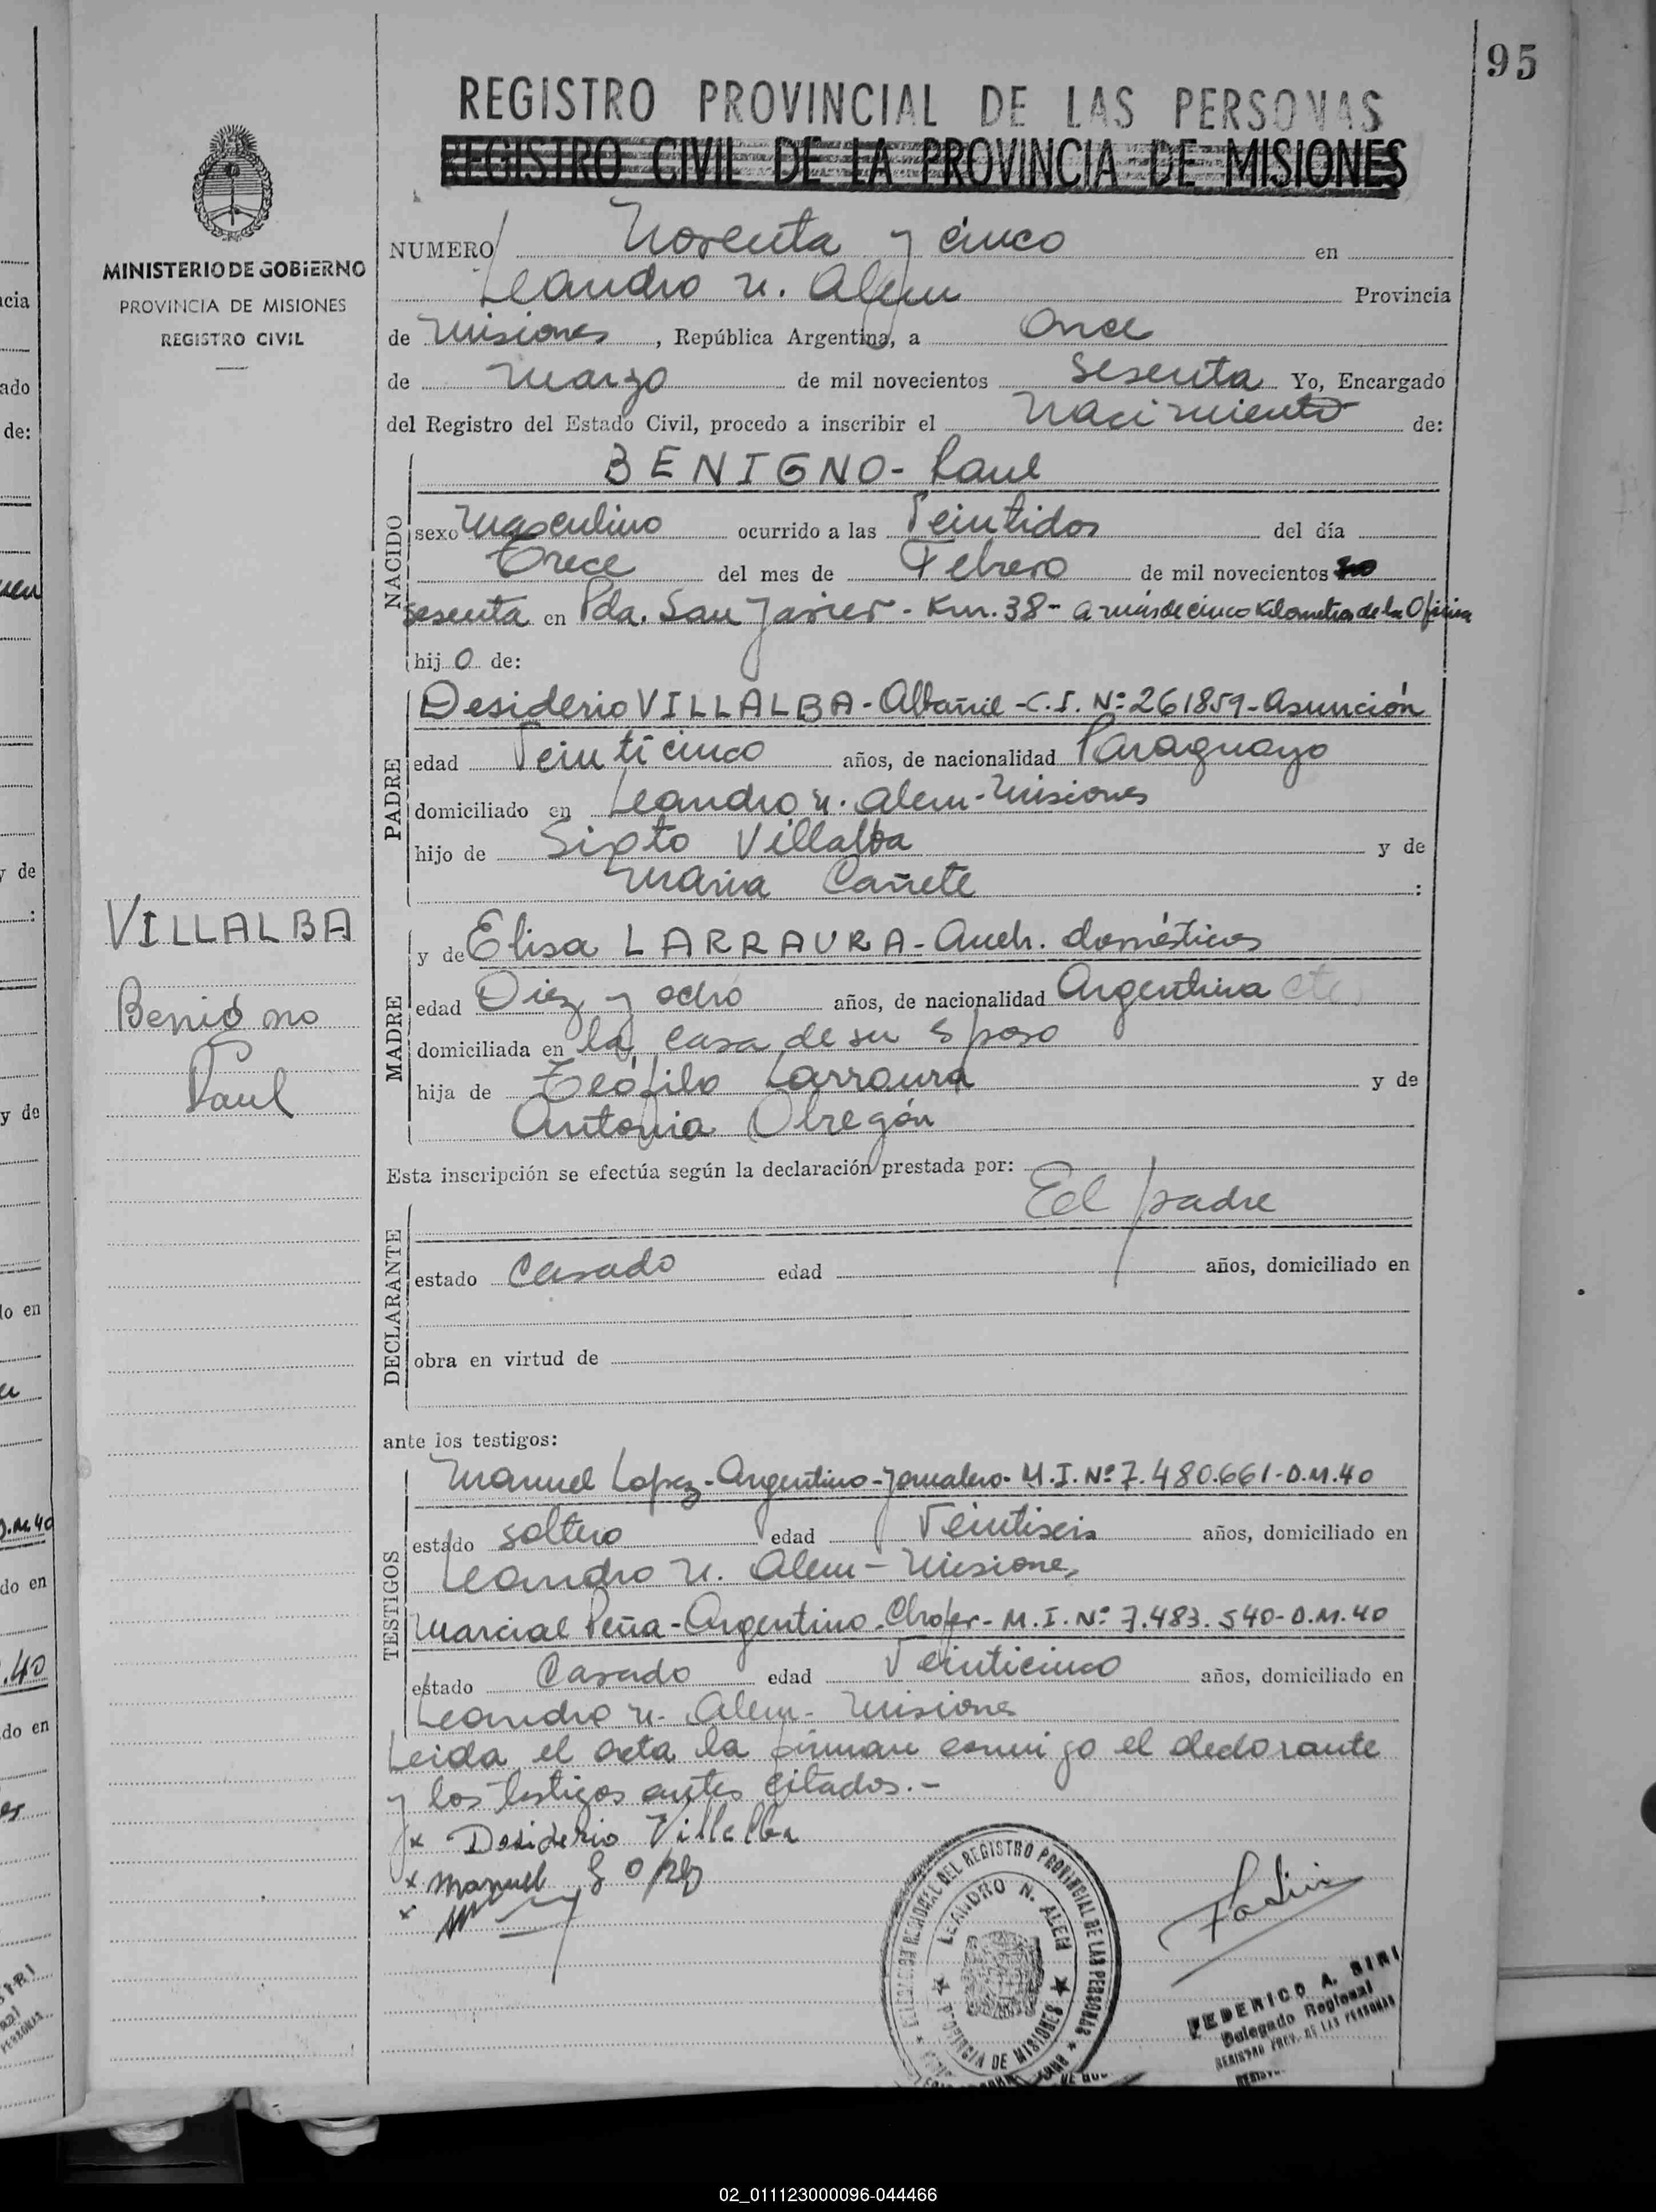 95
REGISTRO PROVINCIAL DE LAS PERSONAS
REGISTRO CIVIL DE LA PROVINCIA DE MISIONES
MINISTERIO DE GOBIERNO
PROVINCIA DE MISIONES
REGISTRO CIVIL
NUMERO Noventa y cinco en
Leandro N. Alem Provincia
de Misiones, República Argentina, a Once
de Marzo de mil novecientos sesenta Yo, Encargado
del Registro del Estado Civil, procedo a inscribir el Nacimiento de:
NACIDO
BENIGNO - Raul
sexo Masculino ocurrido a las Veintidos del día
Trece del mes de Febrero de mil novecientos
sesenta en Pda. San Javier - Km. 38 - a más de cinco Kilometros de la Oficina
hijo de:
PADRE
Desiderio VILLALBA - Albañil - C.I. Nº 261859 - Asunción
edad Veinticinco años, de nacionalidad Paraguayo
domiciliado en Leandro N. Alem - Misiones
hijo de Sixto Villalba y de
Maria Cañete :
VILLALBA
Benigno
Raul
MADRE
y de Elisa LARRAURA - Queh. domésticos
edad Diez y ocho años, de nacionalidad Argentina
domiciliada en la casa de su esposo
hija de Teófilo Larraura y de
Antonia Obregón
Esta inscripción se efectúa según la declaración prestada por:
DECLARANTE
El padre
estado Casado edad años, domiciliado en
obra en virtud de
ante los testigos:
TESTIGOS
Manuel Lopez - Argentino - jornalero - M.I. Nº 7.480.661 - D.M. 40
estado soltero edad Veintiseis años, domiciliado en
Leandro N. Alem - Misiones
Marcial Peña - Argentino - Chofer - M.I. Nº 7.483.540 - D.M. 40
estado Casado edad Veinticinco años, domiciliado en
Leandro N. Alem - Misiones
Leida el acta la firman conmigo el declarante
y los testigos antes citados.-
x Desiderio Villalba
x Manuel Lopez
x
DEL REGISTRO PROVINCIAL DE LAS PERSONAS
LEANDRO N. ALEM
PROVINCIA DE MISIONES
FEDERICO A. SIRI
Delegado Regional
REGISTRO PROV. DE LAS PERSONAS
02_011123000096-044466